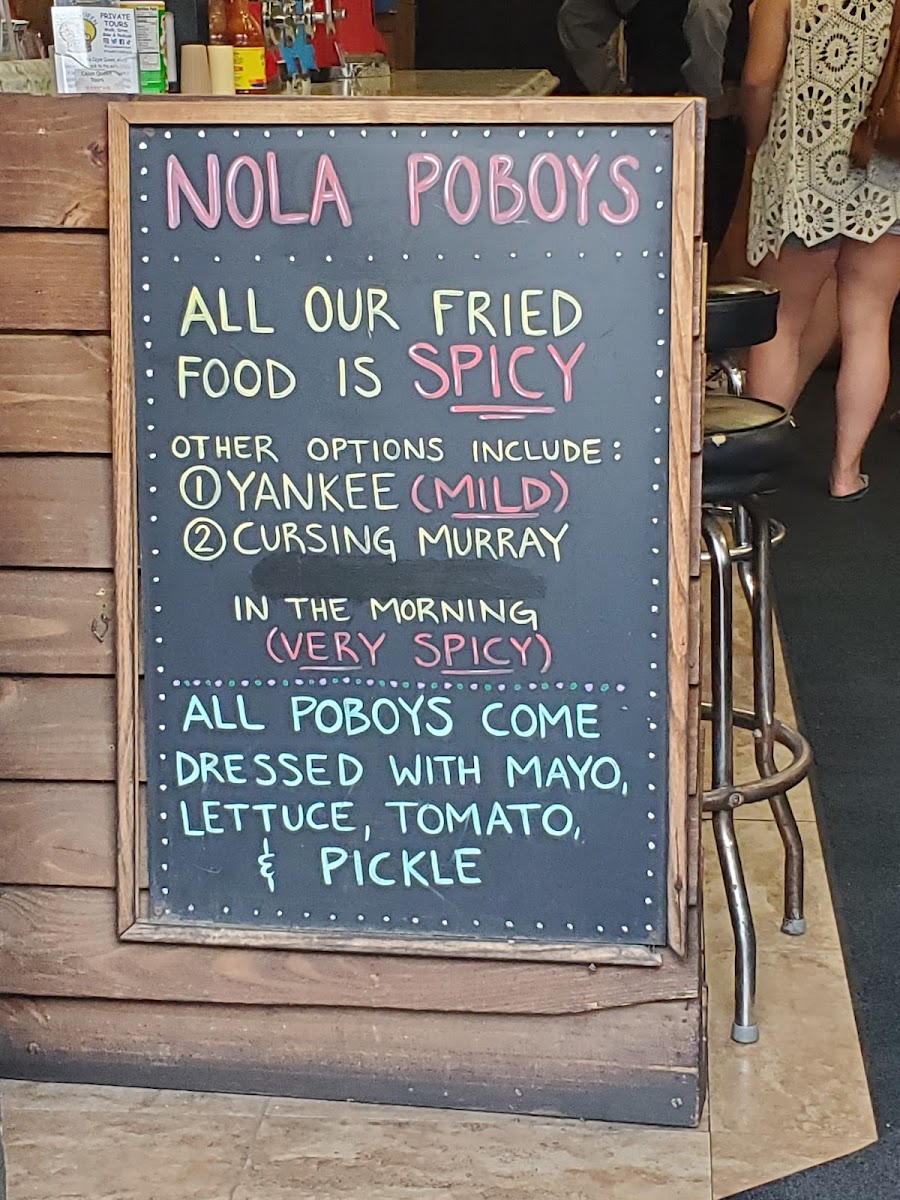 PRIVATE
TOURS
NOLA POBOYS
ALL OUR FRIED
FOOD IS SPICY
OTHER OPTIONS INCLUDE:
① YANKEE (MILD)
② CURSING MURRAY
IN THE MORNING
(VERY SPICY)
ALL POBOYS COME
DRESSED WITH MAYO,
LETTUCE, TOMATO,
& PICKLE